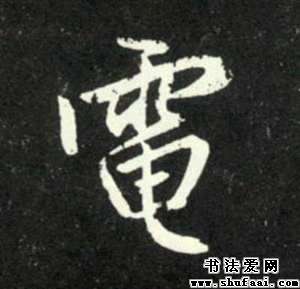 電
书法爱网
www.shufaai.com